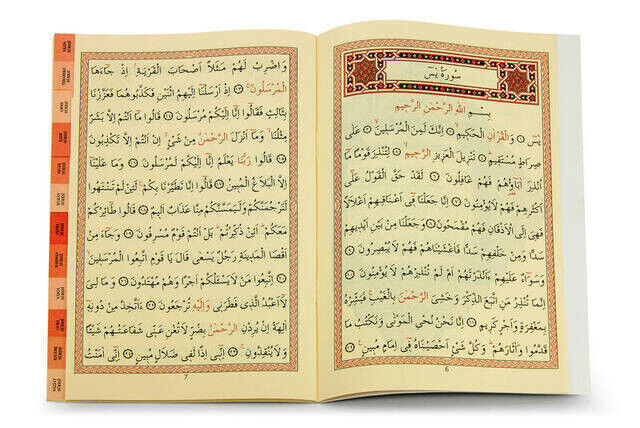 سُورَةُ يٰسٓ
بِسْمِ اللهِ الرَّحْمٰنِ الرَّحِيمِ
يٰسٓ ﴿١﴾ وَالْقُرْاٰنِ الْحَكِيمِ ﴿٢﴾ اِنَّكَ لَمِنَ الْمُرْسَلِينَ ﴿٣﴾ عَلٰى
صِرَاطٍ مُسْتَقِيمٍ ﴿٤﴾ تَنْزِيلَ الْعَزِيزِ الرَّحِيمِ ﴿٥﴾ لِتُنْذِرَ قَوْمًا مَا
اُنْذِرَ اٰبَاؤُهُمْ فَهُمْ غَافِلُونَ ﴿٦﴾ لَقَدْ حَقَّ الْقَوْلُ عَلٰى
اَكْثَرِهِمْ فَهُمْ لَا يُؤْمِنُونَ ﴿٧﴾ اِنَّا جَعَلْنَا فِى اَعْنَاقِهِمْ اَغْلَالًا
فَهِىَ اِلَى الْاَذْقَانِ فَهُمْ مُقْمَحُونَ ﴿٨﴾ وَجَعَلْنَا مِنْ بَيْنِ اَيْدِيهِمْ
سَدًّا وَمِنْ خَلْفِهِمْ سَدًّا فَاَغْشَيْنَاهُمْ فَهُمْ لَا يُبْصِرُونَ ﴿٩﴾
وَسَوَاءٌ عَلَيْهِمْ ءَاَنْذَرْتَهُمْ اَمْ لَمْ تُنْذِرْهُمْ لَا يُؤْمِنُونَ ﴿١٠﴾
اِنَّمَا تُنْذِرُ مَنِ اتَّبَعَ الذِّكْرَ وَخَشِىَ الرَّحْمٰنَ بِالْغَيْبِ فَبَشِّرْهُ
بِمَغْفِرَةٍ وَاَجْرٍ كَرِيمٍ ﴿١١﴾ اِنَّا نَحْنُ نُحْيِ الْمَوْتٰى وَنَكْتُبُ مَا
قَدَّمُوا وَاٰثَارَهُمْ وَكُلَّ شَىْءٍ اَحْصَيْنَاهُ فِى اِمَامٍ مُبِينٍ ﴿١٢﴾
6
وَاضْرِبْ لَهُمْ مَثَلًا اَصْحَابَ الْقَرْيَةِ اِذْ جَاءَهَا
الْمُرْسَلُونَ ﴿١٣﴾ اِذْ اَرْسَلْنَا اِلَيْهِمُ اثْنَيْنِ فَكَذَّبُوهُمَا فَعَزَّزْنَا
بِثَالِثٍ فَقَالُوا اِنَّا اِلَيْكُمْ مُرْسَلُونَ ﴿١٤﴾ قَالُوا مَا اَنْتُمْ اِلَّا بَشَرٌ
مِثْلُنَا وَمَا اَنْزَلَ الرَّحْمٰنُ مِنْ شَىْءٍ اِنْ اَنْتُمْ اِلَّا تَكْذِبُونَ
﴿١٥﴾ قَالُوا رَبُّنَا يَعْلَمُ اِنَّا اِلَيْكُمْ لَمُرْسَلُونَ ﴿١٦﴾ وَمَا عَلَيْنَا
اِلَّا الْبَلَاغُ الْمُبِينُ ﴿١٧﴾ قَالُوا اِنَّا تَطَيَّرْنَا بِكُمْ لَئِنْ لَمْ تَنْتَهُوا
لَنَرْجُمَنَّكُمْ وَلَيَمَسَّنَّكُمْ مِنَّا عَذَابٌ اَلِيمٌ ﴿١٨﴾ قَالُوا طَائِرُكُمْ
مَعَكُمْ اَئِنْ ذُكِّرْتُمْ بَلْ اَنْتُمْ قَوْمٌ مُسْرِفُونَ ﴿١٩﴾ وَجَاءَ مِنْ
اَقْصَا الْمَدِينَةِ رَجُلٌ يَسْعٰى قَالَ يَا قَوْمِ اتَّبِعُوا الْمُرْسَلِينَ
﴿٢٠﴾ اِتَّبِعُوا مَنْ لَا يَسْئَلُكُمْ اَجْرًا وَهُمْ مُهْتَدُونَ ﴿٢١﴾ وَمَا لِىَ
لَا اَعْبُدُ الَّذِى فَطَرَنِى وَاِلَيْهِ تُرْجَعُونَ ﴿٢٢﴾ ءَاَتَّخِذُ مِنْ دُونِهِ
اٰلِهَةً اِنْ يُرِدْنِ الرَّحْمٰنُ بِضُرٍّ لَا تُغْنِ عَنِّى شَفَاعَتُهُمْ شَيْئًا
وَلَا يُنْقِذُونِ ﴿٢٣﴾ اِنِّى اِذًا لَفِى ضَلَالٍ مُبِينٍ ﴿٢٤﴾ اِنِّى اٰمَنْتُ
7